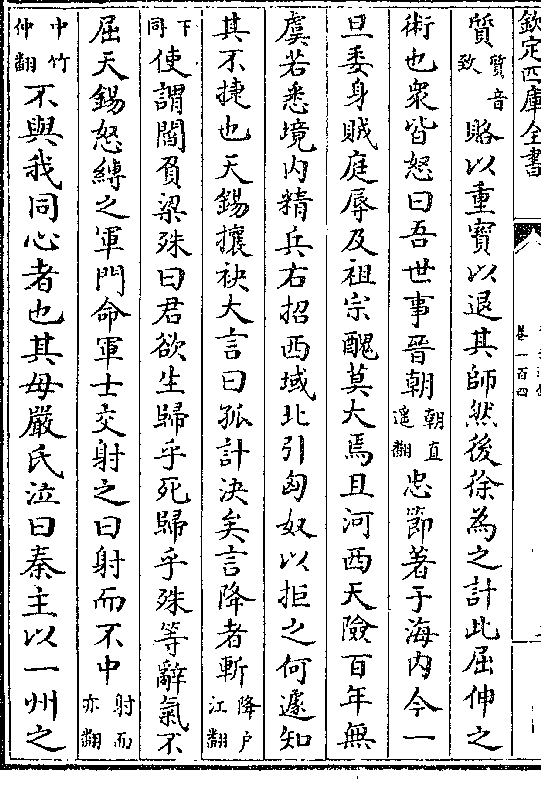 欽定四庫全書
卷一百四
質質音致賂以重寳以退其師然後徐為之計此屈伸之
術也衆皆怒曰吾世事晉朝朝直遥翻忠節著于海内今一
旦委身賊庭辱及祖宗醜莫大焉且河西天險百年無
虞若悉境内精兵右招西域北引匈奴以拒之何遽知
其不捷也天錫攘袂大言曰孤計決矣言降者斬降户江翻
下同使謂閻負梁殊曰君欲生歸乎死歸乎殊等辭氣不
屈天錫怒縛之軍門命軍士交射之曰射而不中射而亦翻
中竹仲翻不與我同心者也其母嚴氏泣曰秦主以一州之